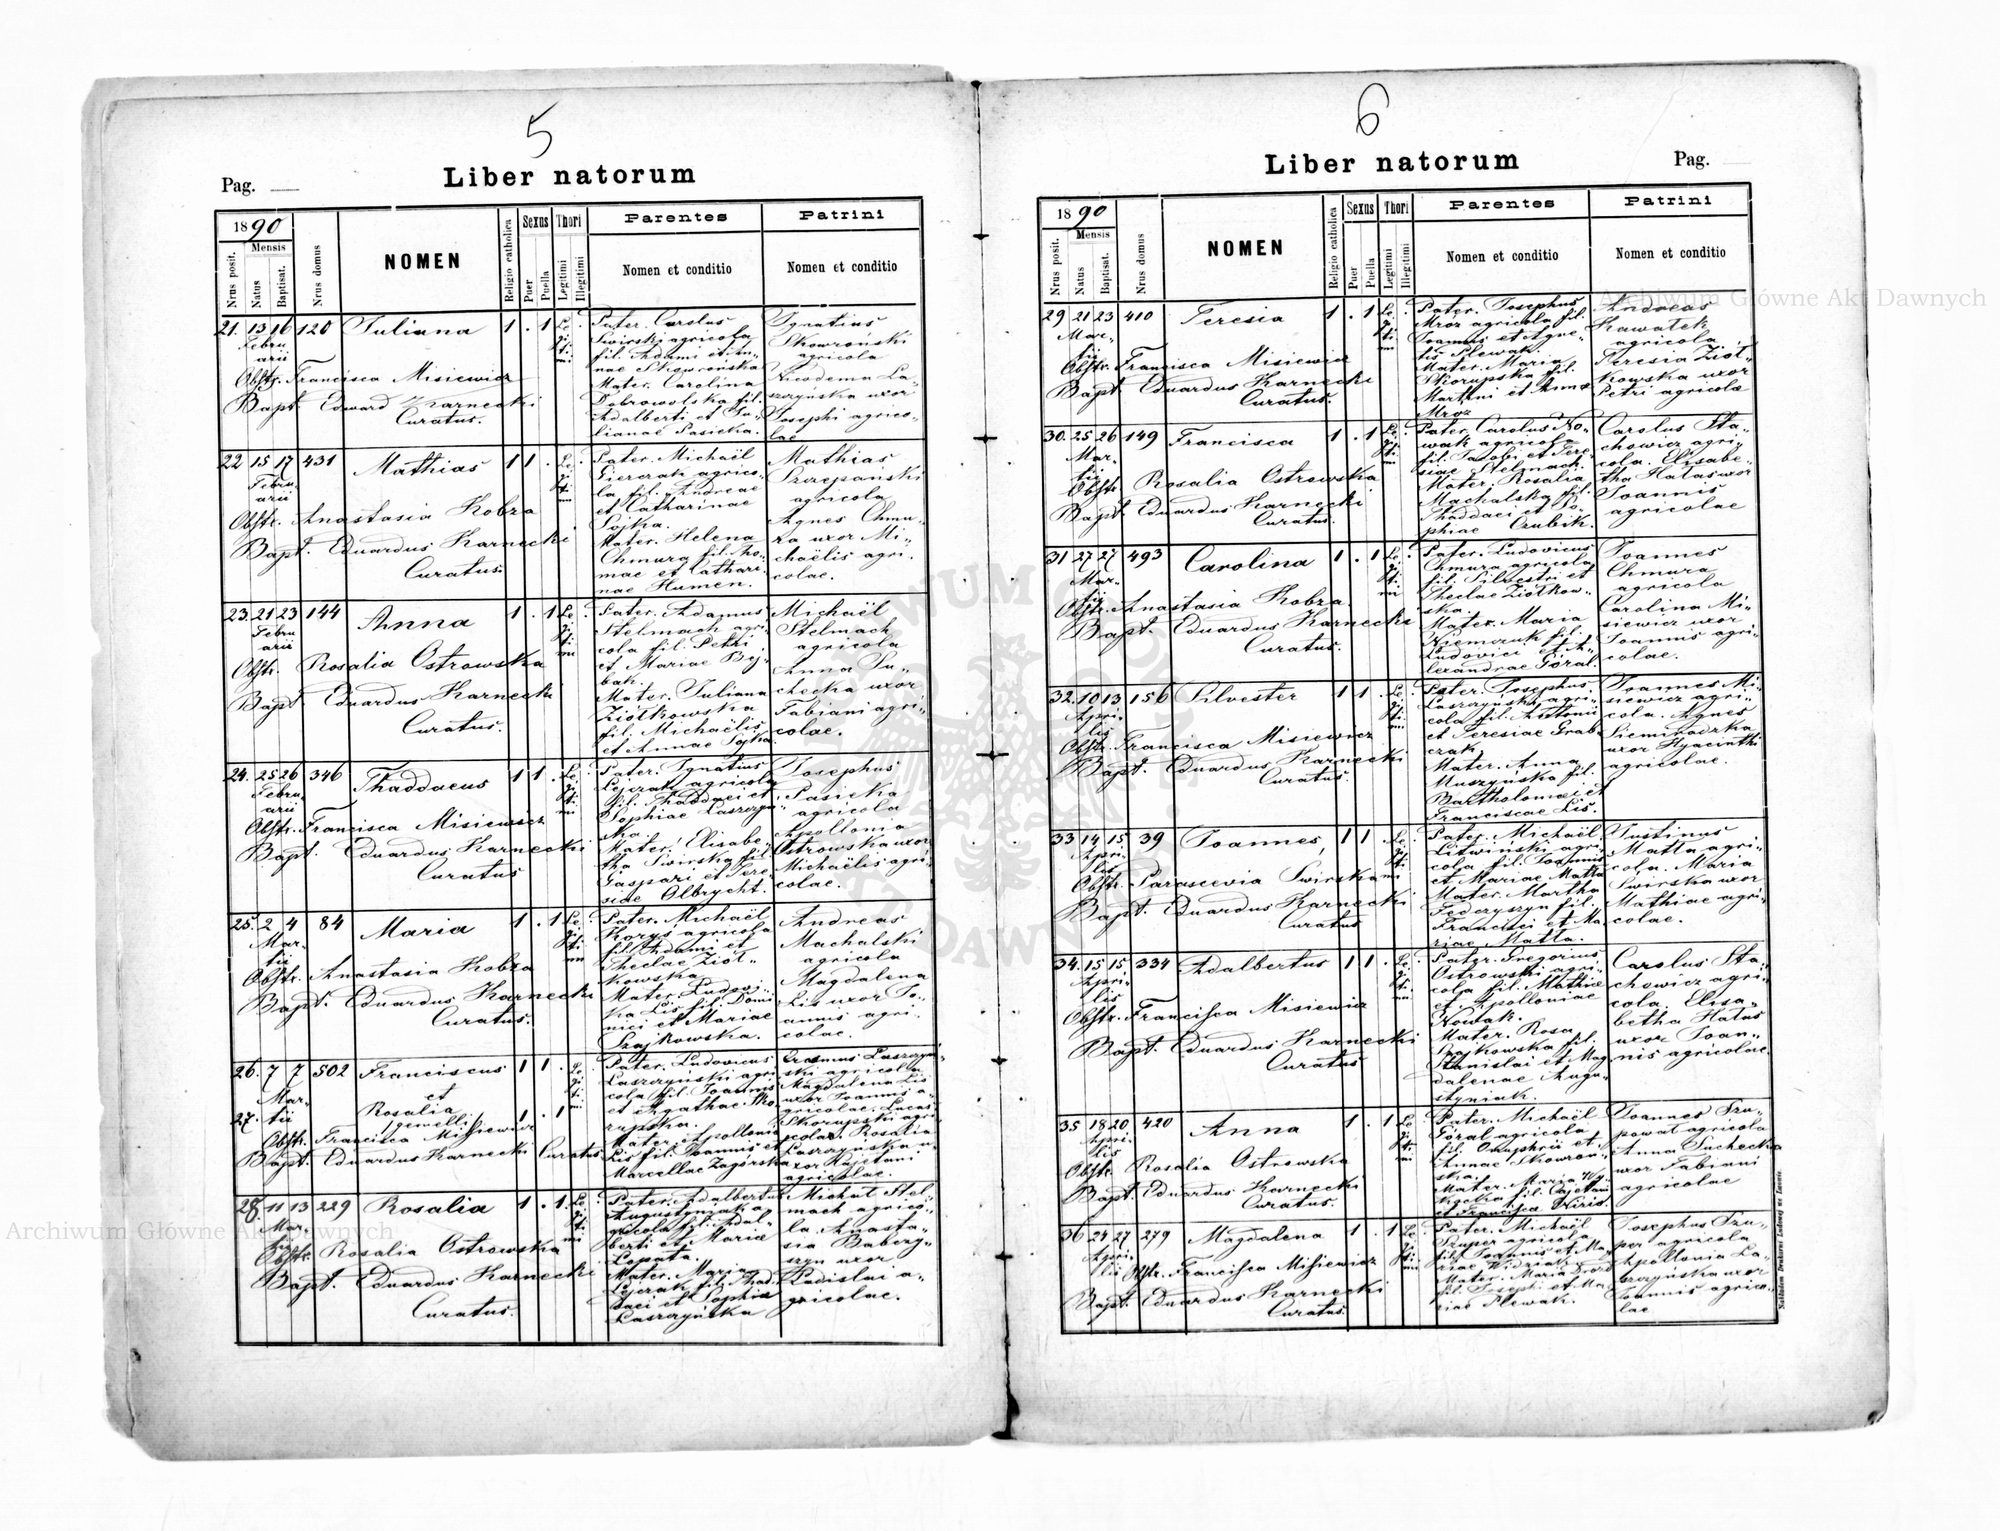 5
Liber natorum
Pag.
1890
Mensis
Nrus posit.
Natus
Baptisat.
Nrus domus
NOMEN
Religio catholica
Sexus
Puer
Puella
Thori
Legitimi
Illegitimi
Parentes
Nomen et conditio
Patrini
Nomen et conditio
21. 13 16 120 Juliana 1 . 1 Le-
Febru
arii
gi
ti
mi
Obstr. Francisca Misiewicz
Bapt. Edward Karnecki
Curatus.
Pater. Carolus
Świrski agricola
fil. Adami et An-
nae Skowrońska
Mater. Carolina
Dobrowolska fil.
Adalberti et Ju-
lianae Pasieka.
Ignatius
Skowroński
agricola
Nicodema La-
szczyńska uxor
Josephi agrico-
lae
22 15 17 431 Mathias 1 1 . Le-
Febru
arii
gi
ti
mi
Obstr. Anastasia Kobza
Bapt. Eduardus Karnecki
Curatus.
Pater. Michaël
agrico-
la fil. Andreae
et Catharinae
Sojka.
Mater. Helena
Chmura fil. Tho-
mae et Cathari-
nae Humen.
Mathias
Szczepański
agricola
Agnes Chmu-
ra uxor Mi-
chaëlis agri-
colae.
23. 21 23 144 Anna 1 . 1 Le-
Febru
arii
gi
ti
mi
Obstr. Rosalia Ostrowska
Bapt. Eduardus Karnecki
Curatus.
Pater. Adamus
Stelmach agri-
cola fil. Petri
et Mariae Baj-
bak.
Mater. Juliana
Ziółkowska
fil. Michaëlis
et Annae Sojka.
Michaël
Stelmach
agricola
Anna Su-
checka uxor
Fabiani agri-
colae.
24. 25 26 346 Thaddaeus 1 1 . Le-
Febru
arii
gi
ti
mi
Obstr. Francisca Misiewicz
Bapt. Eduardus Karnecki
Curatus
Pater. Ignatius
Lejczak agricola
fil. Thaddaei et
Sophiae Laszczyń-
ska.
Mater. Elisabe-
tha Świrska fil.
Gaspari et There-
siae Olbrycht.
Josephus
Pasieka
agricola
Apollonia
Ostrowska uxor
Michaëlis agri-
colae.
25. 2 4 84 Maria 1 . 1 Le-
Mar-
tii
gi
ti
mi
Obstr. Anastasia Kobza
Bapt. Eduardus Karnecki
Curatus.
Pater. Michaël
Korys agricola
fil. Adami et
Theclae Ziół-
kowska.
Mater. Ludovi-
ka Lis fil. Domi
nici et Mariae
Szajkowska.
Andreas
Machalski
agricola
Magdalena
Lis uxor Jo-
annis agri-
colae.
26. 7 7 502 Franciscus 1 1 . Le-
Mar-
tii
gi
ti
mi
et
27. Rosalia 1 . 1
gemelli
Obstr. Francisca Misiewicz
Bapt. Eduardus Karnecki Curatus
Pater. Ludovicus
Laszczyński agri
cola fil. Joannis
et Agathae Sko-
rupska.
Mater. Apollonia
Lis fil. Joannis et
Marcellae Zagórska
Erasmus Laszczyń-
ski agricola
Magdalena Lis
uxor Joannis a-
gricolae. Lucas
Skorupski agri-
cola. Rosalia
Laszczyńska u-
xor Kajetani
agricolae.
28. 11 13 229 Rosalia 1 . 1 Le-
Mar-
tii
gi
ti
mi
Obstr. Rosalia Ostrowska
Bapt. Eduardus Karnecki
Curatus.
Pater. Adalbertus
Augustyniak a
gricola fil. Adal-
berti et Mariae
Łopata.
Mater. Maria
Lejczak fil. Thad-
daei et Sophia
Laszczyńska
Michał Stel-
mach agrico-
la Anasta-
sia Babczy-
szyn uxor
Ladislai a-
gricolae.
6
Liber natorum
Pag.
1890
Mensis
Nrus posit.
Natus
Baptisat.
Nrus domus
NOMEN
Religio catholica
Sexus
Puer
Puella
Thori
Legitimi
Illegitimi
Parentes
Nomen et conditio
Patrini
Nomen et conditio
29 21 23 410 Teresia 1 . 1 Le-
Mar-
tii
gi
ti
mi
Obstr. Francisca Misiewicz
Bapt. Eduardus Karnecki
Curatus.
Pater. Josephus
Mroz agricola fil.
Joannis et Agne-
tis Plewak.
Mater. Maria
Skorupska fil.
Martini et Annae
Mroz
Andreas
Kawałek
agricola.
Teresia Ziół-
kowska uxor
Petri agricolae
30. 25 26 149 Francisca 1 . 1 Le-
Mar-
tii
gi
ti
mi
Obstr. Rosalia Ostrowska
Bapt. Eduardus Karnecki
Curatus.
Pater. Carolus No-
wak agricola
fil. Jacobi et Tere-
siae Stelmach.
Mater. Rosalia
Machalska fil.
Thaddaei et So-
phiae Czubik.
Carolus Sta-
chowicz agri-
cola. Elisabe-
tha Hałas uxor
Joannis
agricolae
31 27 27 493 Carolina 1 . 1 Le-
Mar-
tii
gi
ti
mi
Obstr. Anastasia Kobza.
Bapt. Eduardus Karnecki
Curatus.
Pater. Ludovicus
Chmura agricola
fil. Silvestri et
Theclae Ziółkow-
ska.
Mater. Maria
Niemczuk fil.
Ludovici et A-
lexandrae Góral.
Joannes
Chmura
agricola
Carolina Mi-
siewicz uxor
Joannis agri-
colae.
32. 10 13 156 Silvester 1 1 . Le-
Apri-
lis
gi
ti
mi
Obstr. Francisca Misiewicz
Bapt. Eduardus Karnecki
Curatus.
Pater. Josephus
Laszczyński agri-
cola fil. Antonii
et Teresiae Grab-
czak
Mater. Anna
Muszyńska fil.
Bartholomaei et
Franciscae Lis.
Joannes Mi-
siewicz agri-
cola. Agnes
uxor Hyacinthi
agricolae.
33 14 15 39 Joannes, 1 1 Le-
Apri-
lis
gi
ti
mi
Obstr. Parascevia Świrska
Bapt. Eduardus Karnecki
Curatus
Pater. Michaël
Litwiński agri-
cola fil. Joannis
et Mariae Matła
Mater. Martha
Federyszyn fil.
Francisci et Ma-
riae Matła.
Justinus
Matła agri-
cola. Maria
Świrska uxor
Mathiae agri-
colae.
34. 15 15 334 Adalbertus 1 1 . Le-
Apri-
lis
gi
ti
mi
Obstr. Francisca Misiewicz
Bapt. Eduardus Karnecki
Curatus
Pater. Gregorius
Ostrowski agri-
cola fil. Mathiae
et Apolloniae
Nowak.
Mater. Rosa
Szajkowska fil.
Stanislai et Mag
dalenae Augu-
styniak.
Carolus Sta-
chowicz agri-
cola. Elisa-
betha Hałas
uxor Joan-
nis agricolae.
35 18 20 420 Anna 1 . 1 Le-
Apri-
lis
gi
ti
mi
Obstr. Rosalia Ostrowska
Bapt. Eduardus Karnecki
Curatus.
Pater. Michaël
Góral agricola
fil. Onuphrii et
Annae Skowroń-
ska.
Mater. Maria
fil. Cajetani
et Francisca Kiris.
Joannes Szu-
powat agricola
Anna Suchecka
uxor Fabiani
agricolae
36 24 27 279 Magdalena 1 . 1 Le-
Apri-
lis
gi
ti
mi
Obstr. Francisca Misiewicz
Bapt. Eduardus Karnecki
Curatus.
Pater. Michaël
Szuper agricola
fil. Joannis et Ma-
riae
Mater. Maria
fil. Josephi et Ma-
riae Plewak.
Josephus Szu-
per agricola
Apollonia La-
szczyńska uxor
Joannis agrico-
lae
Nakładem Drukarni Ludowej we Lwowie.
Archiwum Główne Akt Dawnych
Archiwum Główne Akt Dawnych
ARCHIWUM GŁÓWNE AKT DAWNYCH